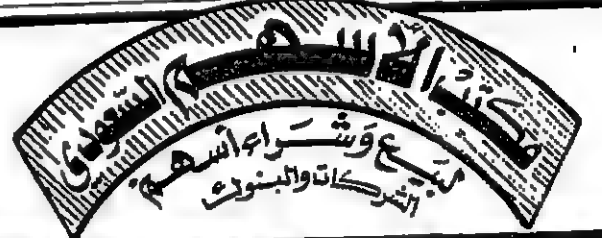 مكتب الأسهم السعودي
بيع وشراء أسهم
الشركات والبنوك